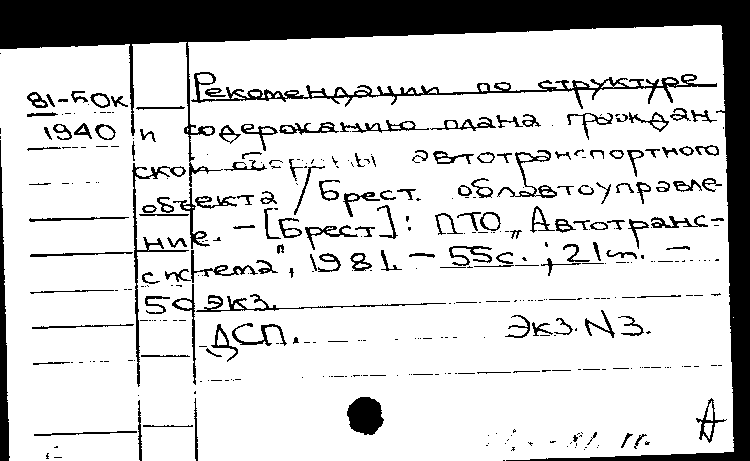 81-50к Рекомендации по структуре
1940 и содержанию плана граждан-
ской обороны автотранспортного
объекта / Брест. облавтоуправле-
ние. - [Брест]: ПТО „Автотранс-
система", 1981. - 55с.; 21см. -
50 экз.
ДСП. Экз. N3.
А